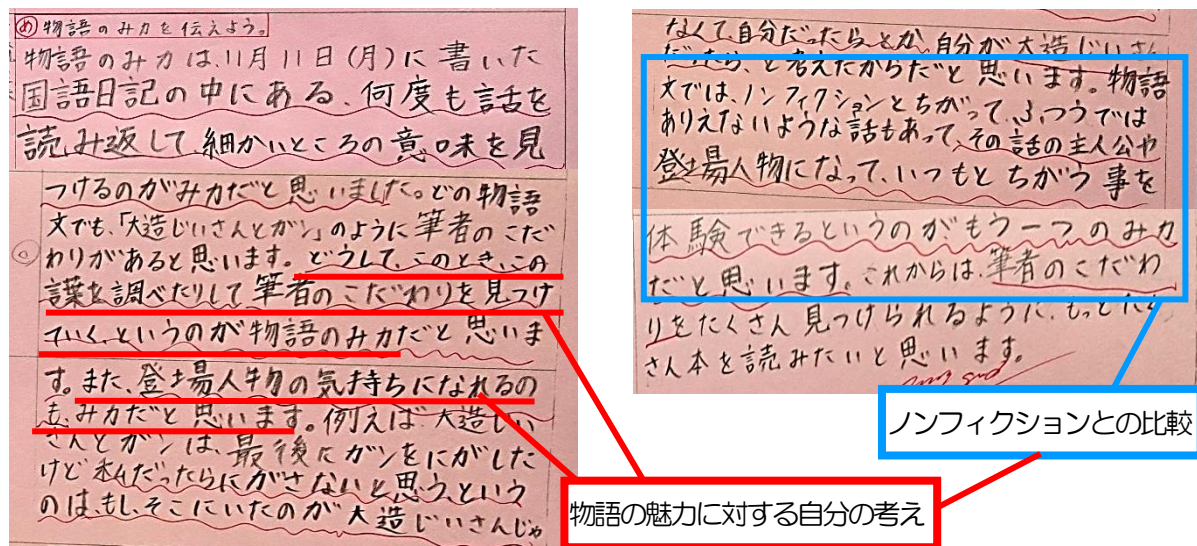 め 物語のみ力を伝えよう。
物語のみ力は、11月11日(月)に書いた
国語日記の中にある、何度も話を
読み返して細かいところの意味を見
つけるのがみ力だと思いました。どの物語
文でも、「大造じいさんとガン」のように筆者のこだ
わりがあると思います。どうして、このとき、この
言葉を調べたりして筆者のこだわりを見つけ
ていく、というのが物語のみ力だと思いま
す。また、登場人物の気持ちになれるの
も、み力だと思います。例えば、大造じい
さんとガンは、最後にガンをにがした
けど私だったらにがさないと思う、という
のは、もし、そこにいたのが大造じいさんじゃ
なくて、自分だったら、とか、自分が大造じいさん
だったら、と考えたからだと思います。物語
文では、ノンフィクションとちがって、ふつうでは
ありえないような話もあって、その話の主人公や
登場人物になって、いつもとちがう事を
体験できるというのがもう一つのみ力
だと思います。これからは、筆者のこだわ
りをたくさん見つけられるように、もっとたく
さん本を読みたいと思います。
ノンフィクションとの比較
物語の魅力に対する自分の考え